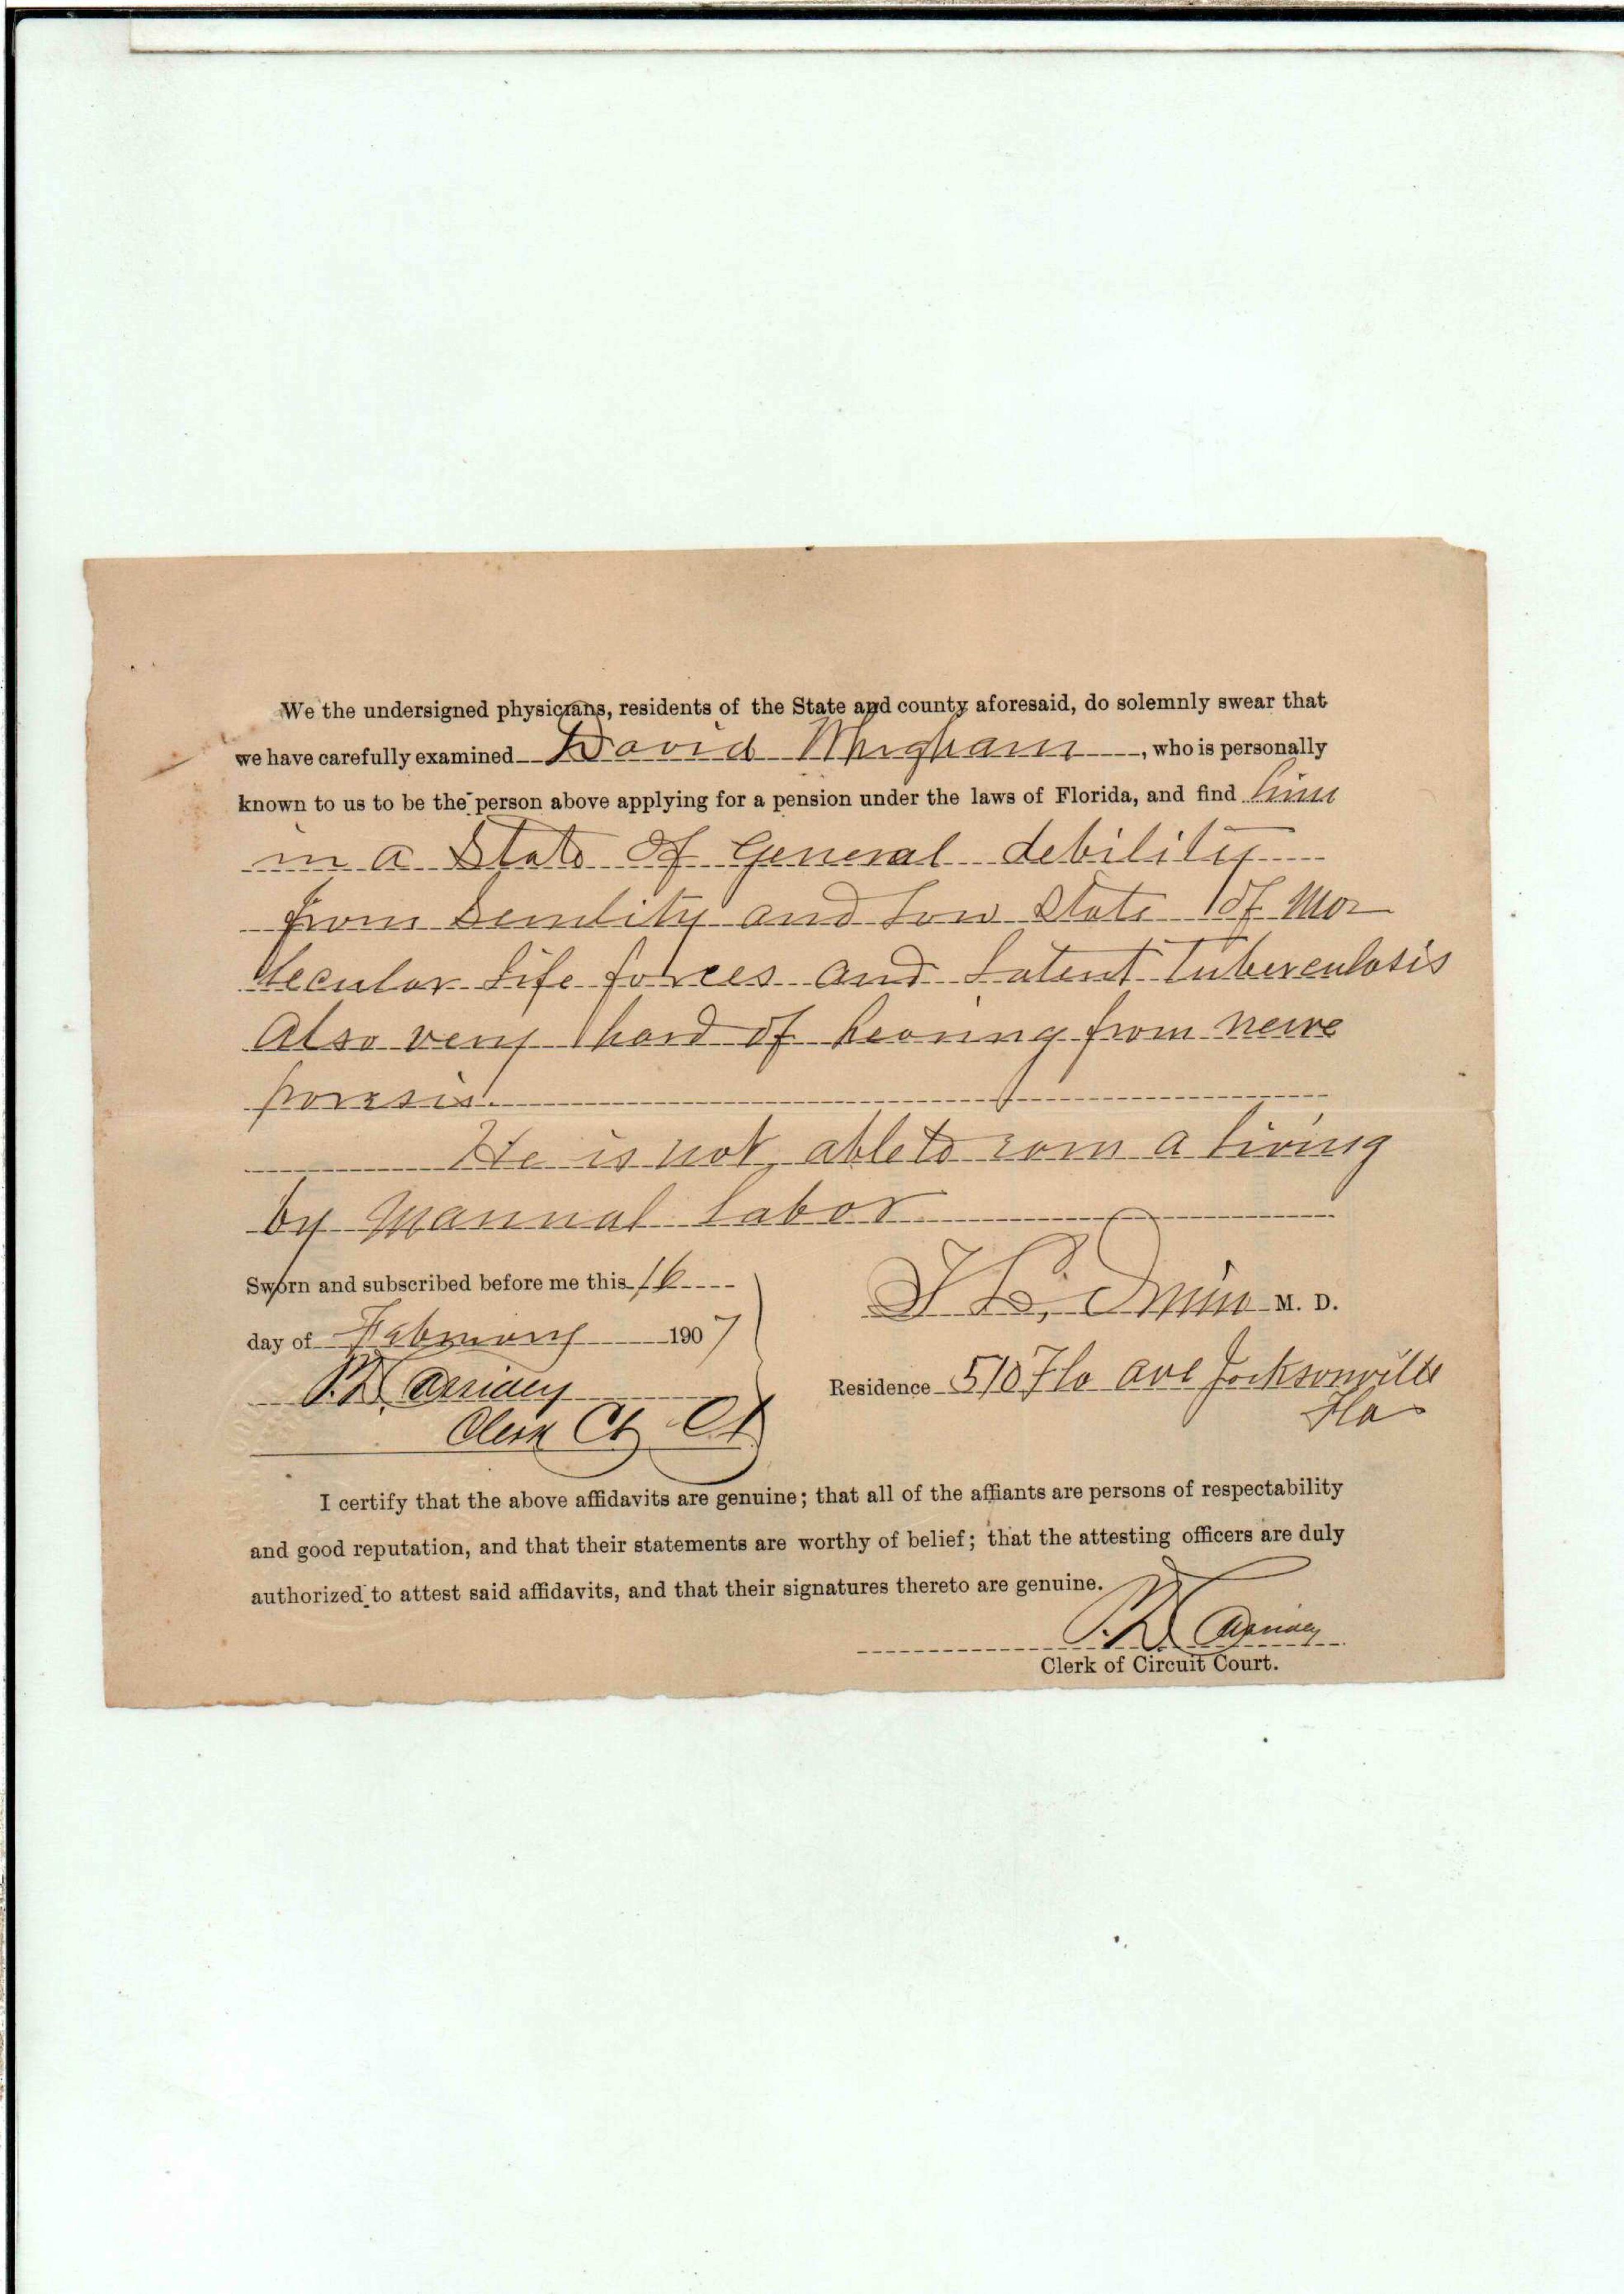 We the undersigned physicians, residents of the State and county aforesaid, do solemnly swear that
we have carefully examined David, who is personally
known to us to be the person above applying for a pension under the laws of Florida, and find him
in a State of General debility
from Senility and Low State of Mo
lecular Life forces and Latent Tuberculosis
Also very hard of hearing from nerve
paresis.
He is not able to earn a living
by Mannual Labor
Sworn and subscribed before me this 16
day of February 1907
P. D.
Clerk Ct Ct
M. D.
Residence 510 Fla ave Jacksonville
Fla
I certify that the above affidavits are genuine; that all of the affiants are persons of respectability
and good reputation, and that their statements are worthy of belief; that the attesting officers are duly
authorized to attest said affidavits, and that their signatures thereto are genuine.
P. D.
Clerk of Circuit Court.